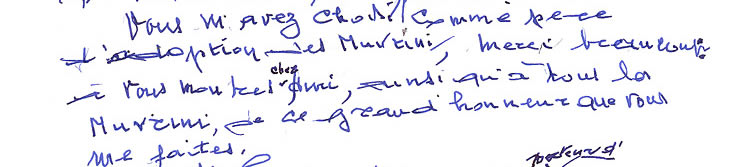 Vous m'avez choisi comme pere
d'adoption des Murzini, merci beaucoup
à vous mon tres chez ami, ainsi qu'à tous la
Murzini, de ce grand honneur que vous
me faites.